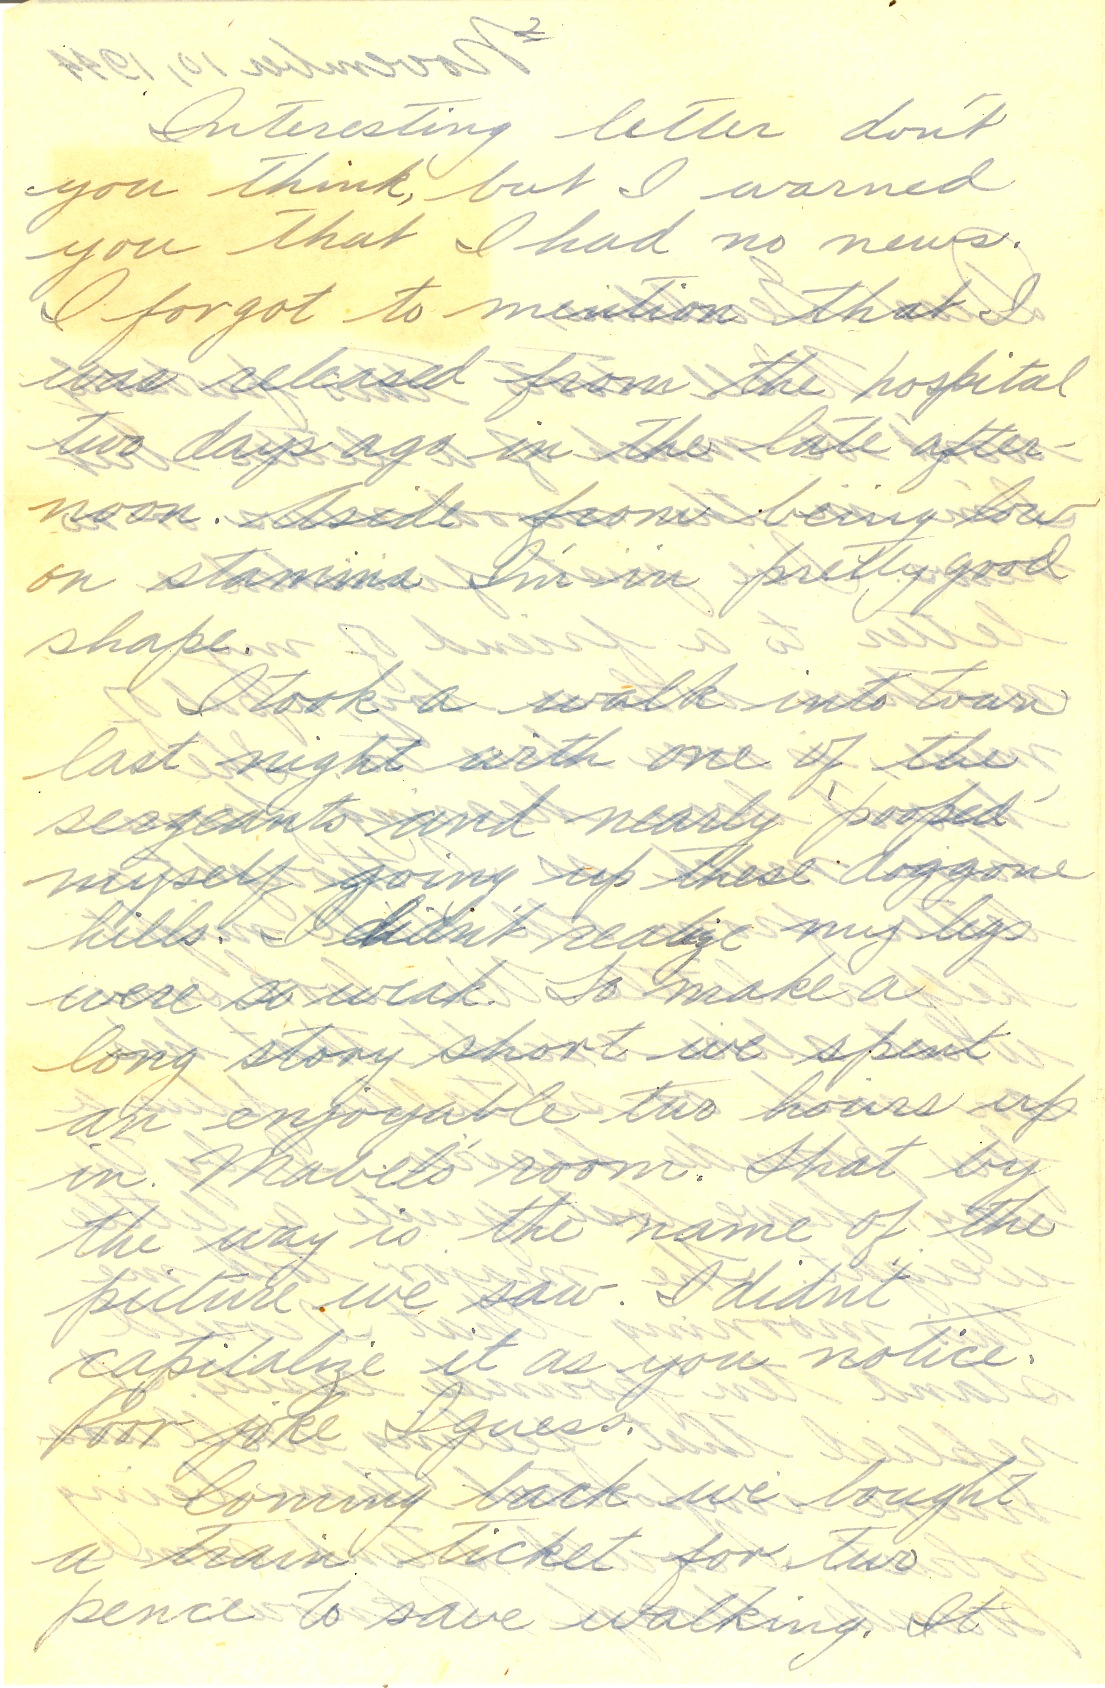 2
Interesting letter don't
you think, but I warned
you that I had no news.
I forgot to mention that I
was released from the hospital
two days ago in the late after-
noon. Aside from being low
on stamina I'm in pretty good
shape.
I took a walk into town
last night with one of the
sergeants and nearly 'pooped'
myself going up these doggone
hills. I didn't realize my legs
were so weak. To make a
long story short we spent
an enjoyable two hours up
in Mabel's room. That by
the way is the name of the
picture we saw. I didn't
capitalize it as you notice.
Poor joke I guess.
Coming back we bought
a train ticket for two
pence to save walking. It